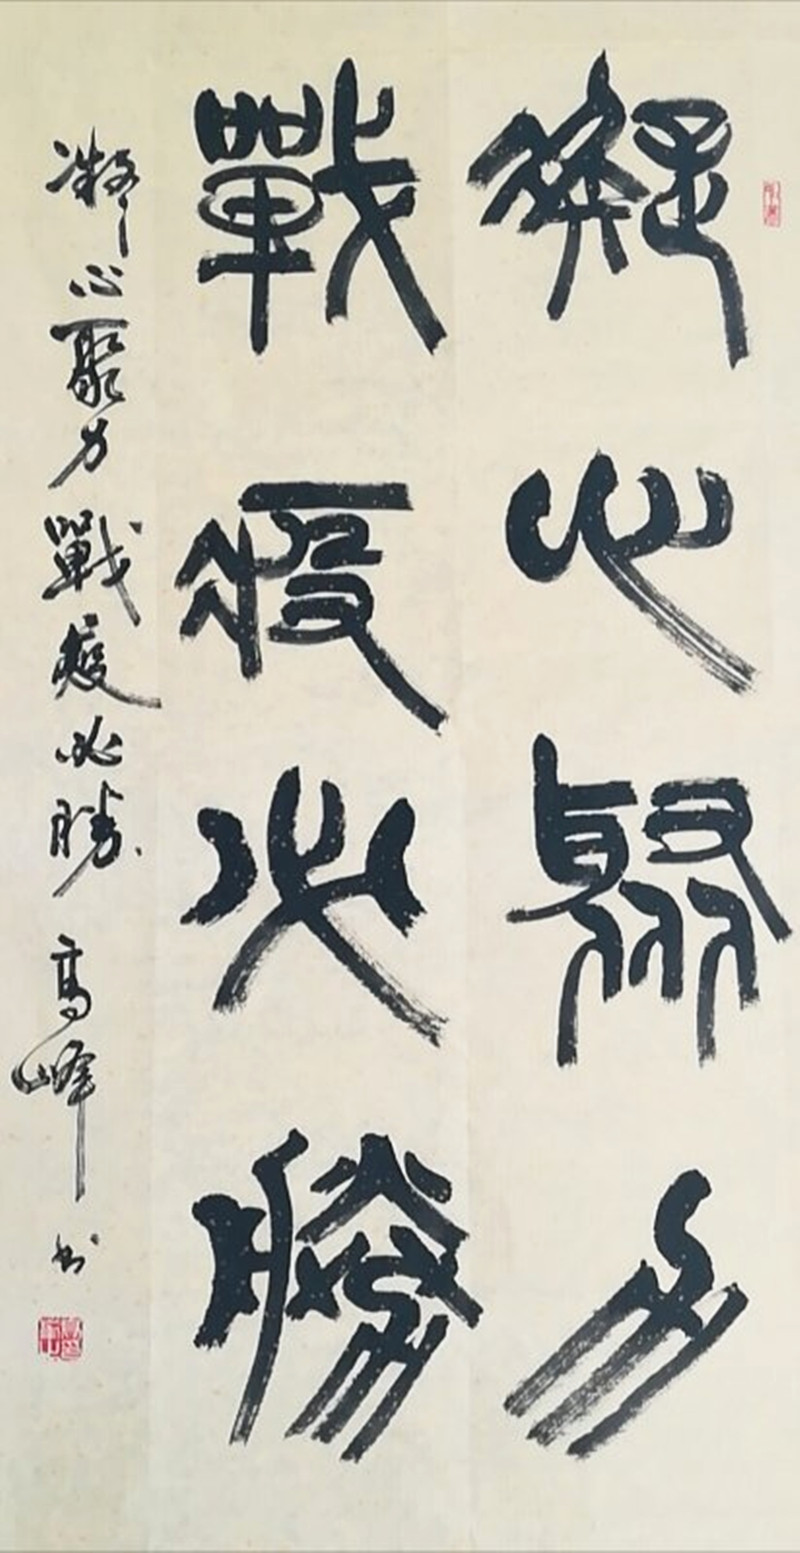 凝心聚力
戰疫必勝
凝心聚力戰疫必勝 高峰书